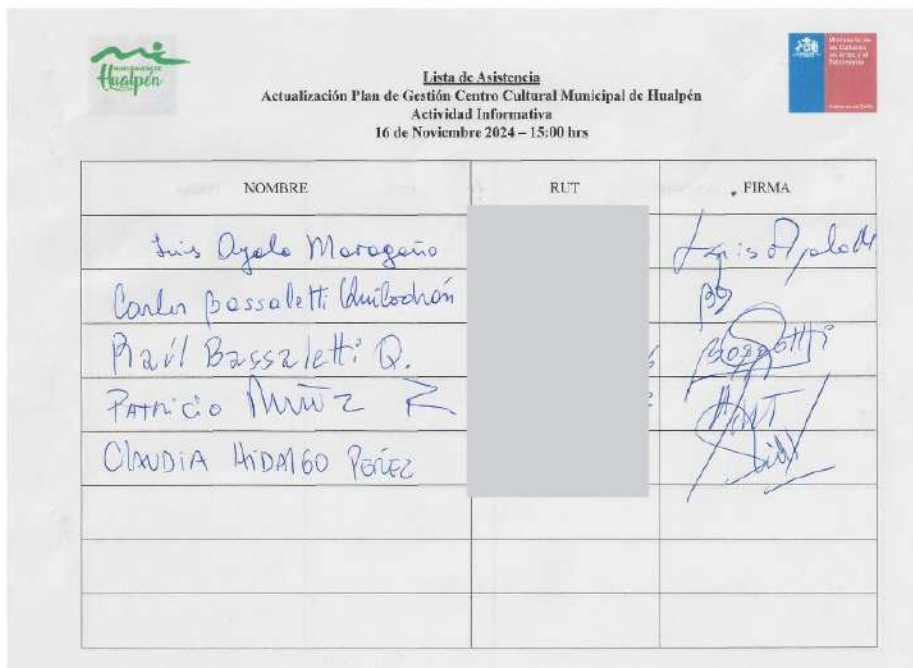 MUNICIPALIDAD DE
Hualpén
Ministerio de
las Culturas,
las Artes y el
Patrimonio
Gobierno de Chile
Lista de Asistencia
Actualización Plan de Gestión Centro Cultural Municipal de Hualpén
Actividad Informativa
16 de Noviembre 2024 – 15:00 hrs
NOMBRE RUT FIRMA
Luis Ayala Maragaño
Carlos Bassaletti Quilodrán
Raúl Bassaletti Q.
Patricio Muñoz R
CLAUDIA HIDALGO PEREZ